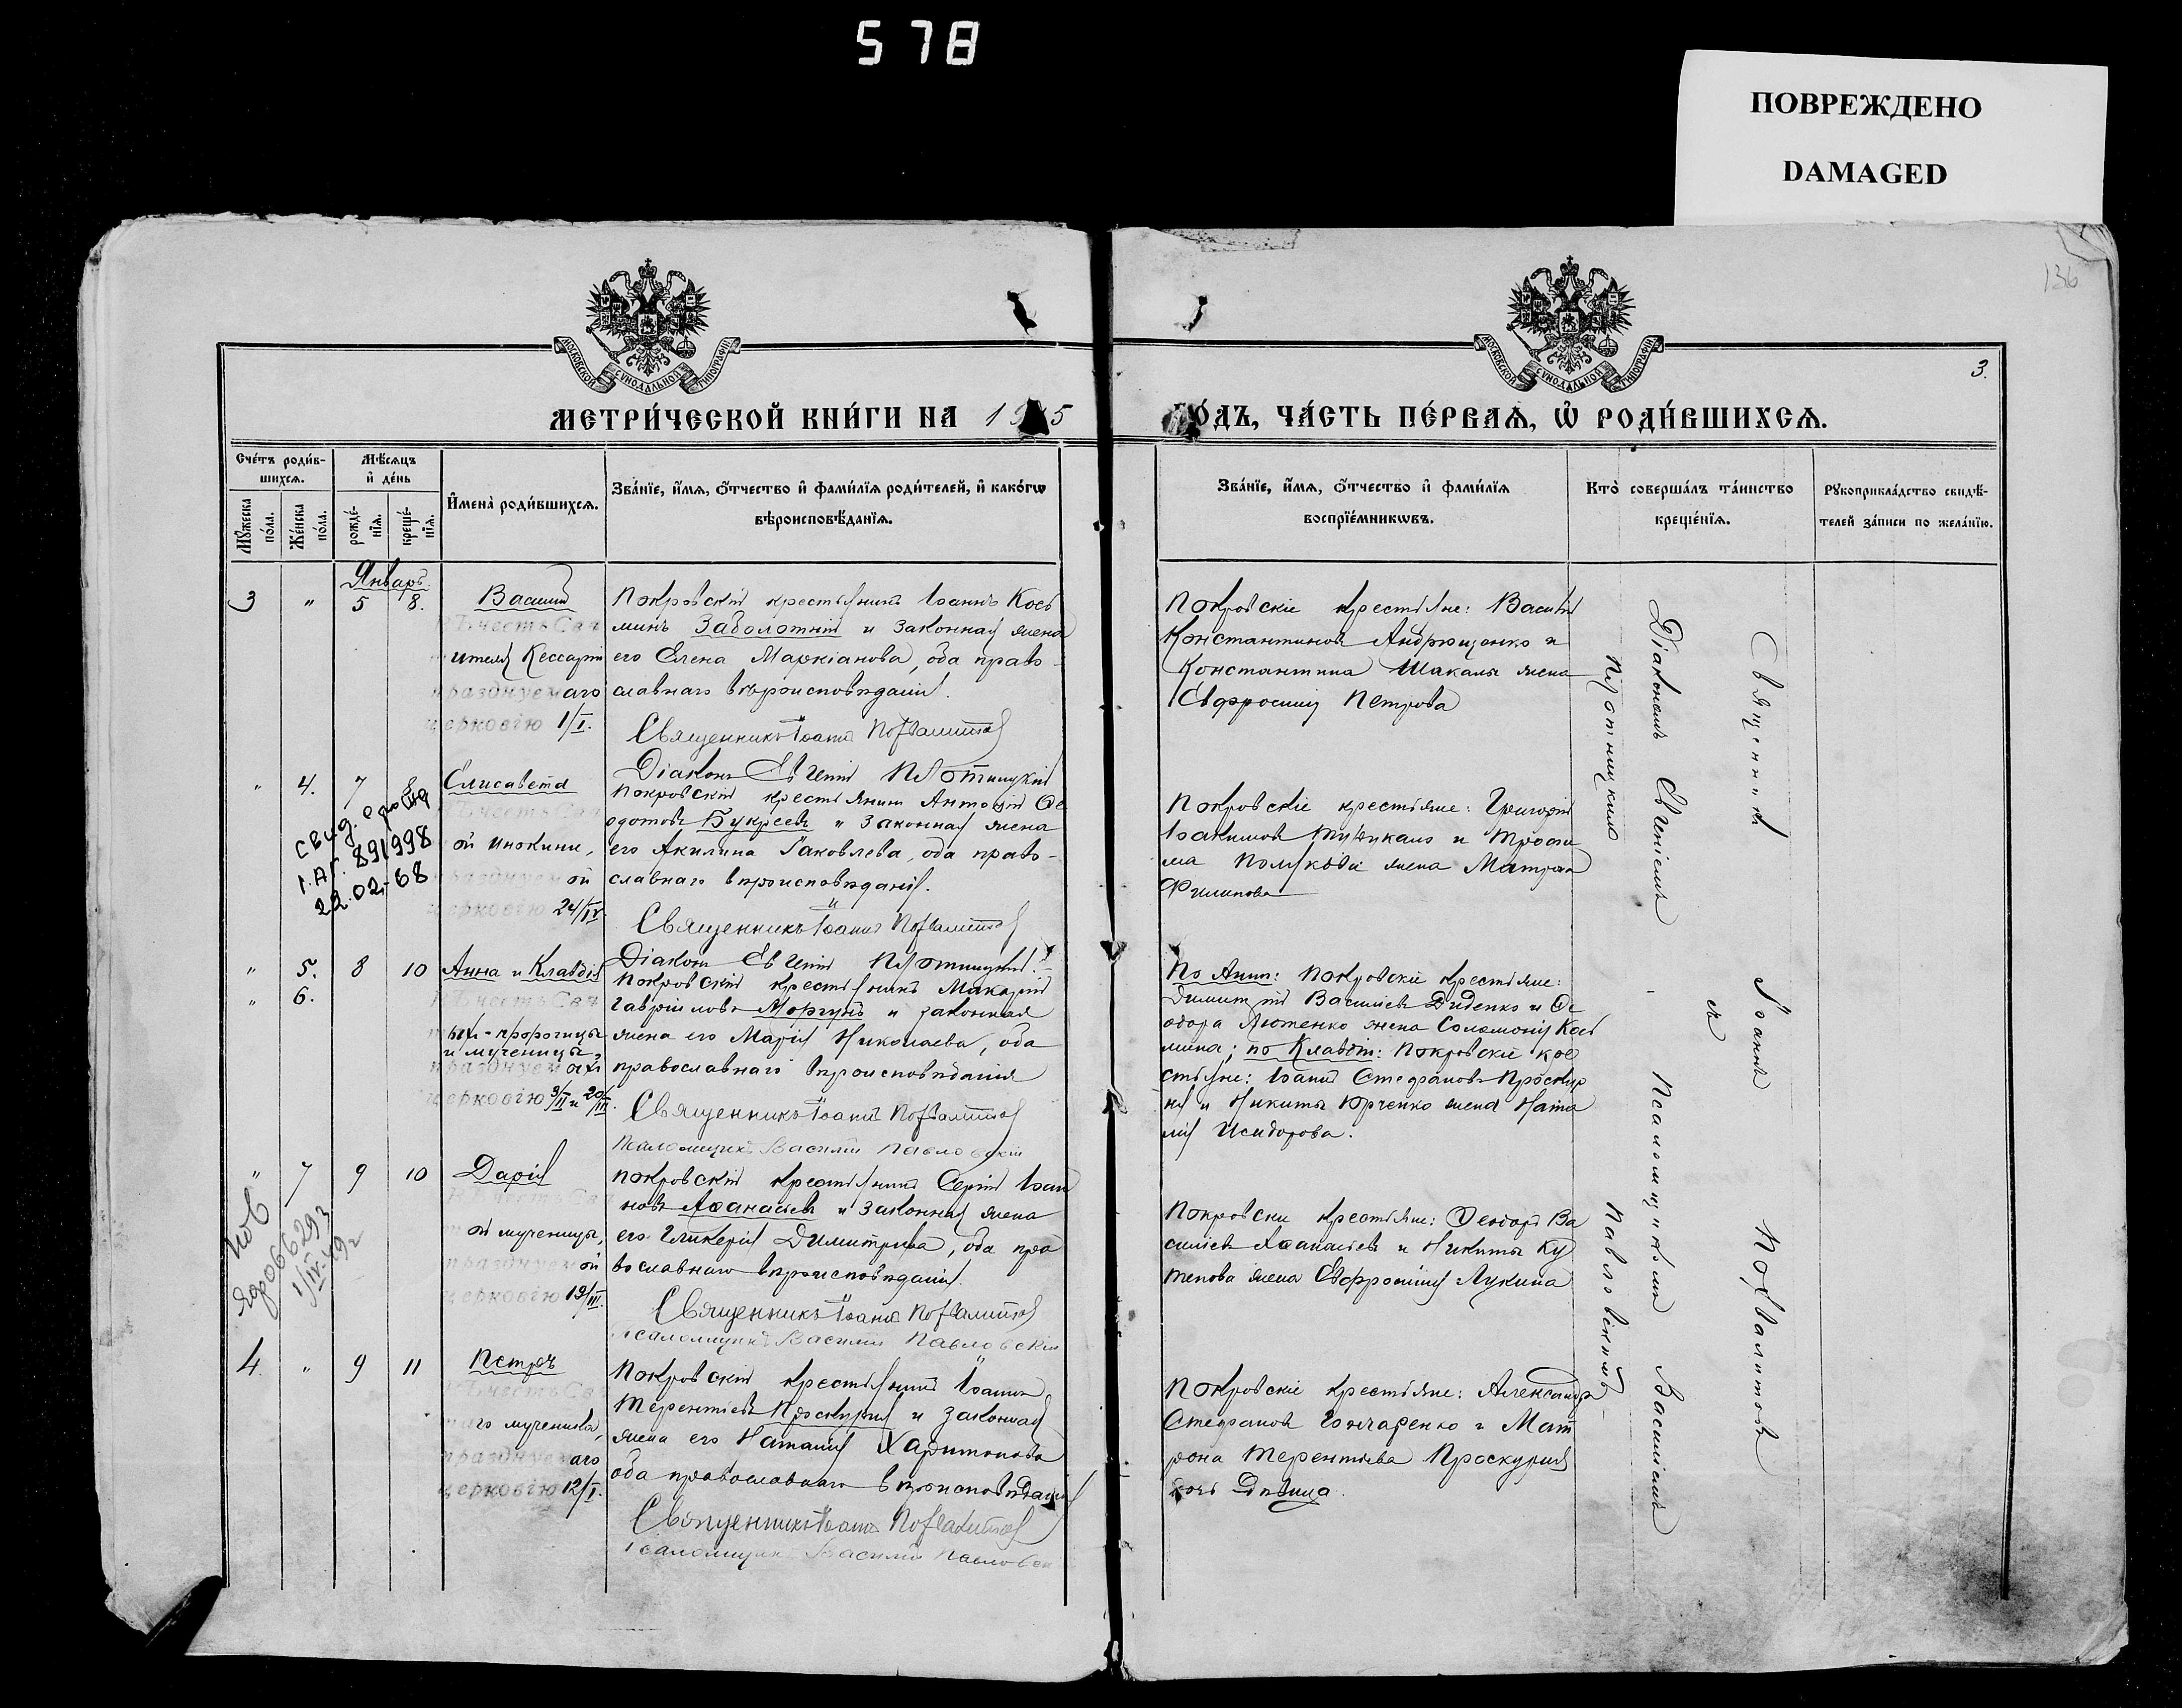 578
ПОВРЕЖДЕНО
DAMAGED
136
3.
МОСКОВСКОЙ СѴНОДАЛЬНОЙ ТИПОГРАФІИ
МОСКОВСКОЙ СѴНОДАЛЬНОЙ ТИПОГРАФІИ
МЕТРИ́ЧЕСКОЙ КНИ́ГИ НА 19 5
ГО́ДЪ, ЧА́СТЬ ПЕ́РВАѦ, Ѡ҆ РОДИ́ВШИХСѦ.
Сче́тъ роди́в-
шихсѧ.
Мꙋ́жеска по́ла.
Же́нска по́ла.
Мѣ́сѧцъ
и҆ де́нь
рожде́-нїѧ.
креще́-нїѧ.
И҆мена̀ роди́вшихсѧ.
Зва́нїе, и҆́мѧ, ѻ҆́тчество и҆ фами́лїѧ роди́телей, и҆ како́гѡ
вѣроисповѣ́данїѧ.
Зва́нїе, и҆́мѧ, ѻ҆́тчество и҆ фами́лїѧ
воспрїе́мникѡвъ.
Кто̀ соверша́лъ та́инство
креще́нїѧ.
Рꙋкоприкла́дство свидѣ́-
телей за́писи по жела́нїю.
Январь
3 " 5 8.
Василій
въ честь Свя
тителя Кессарій
празднуемаго
церковію 1/I.
Покровскій крестьянинъ Іоаннъ Кось
минъ Заболотній и законная жена
его Елена Маркіанова, оба право-
славнаго вѣроисповѣданія.
Священникъ Іоаннъ Похвалитовъ
Діаконъ Евгеній Плотницкій
Покровскіе крестьяне: Василій
Константиновъ Андрющенко и
Константина Шакалы жена
Евфросинія Петрова
" 4. 7
Елисавета
въ честь Свя
ой инокини,
празднуемой
церковію 24/IV.
свид. о рожд
I.АГ. 891998
22.02.-68
Покровскій крестьянинъ Антоній Ѳе
одотовъ Букреевъ и законная жена
его Акилина Іаковлева, оба право-
славнаго вѣроисповѣданія.
Священникъ Іоаннъ Похвалитовъ
Діаконъ Евгеній Плотницкій
Покровскіе крестьяне: Григорій
Іоакимовъ и Трофи
ма жена Матрона
Филипова
" 5. 8 10
" 6.
Анна и Клавдія
въ честь Свя
тыхъ-пророчицы
и мученицы,
празднуемыхъ
церковію 3/II и 20/III.
Покровскій крестьянинъ Макарій
Гавріиловъ Моргунъ и законная
жена его Марія Николаева, оба
православнаго вѣроисповѣданія
Священникъ Іоаннъ Похвалитовъ
Псаломщикъ Василій Павловскій
По Аннѣ: Покровскіе крестьяне:
Димитрій Васильевъ Диденко и Ѳе
одора Лютенко жена Соломонія Кось
мина; по Клавдіи: Покровскіе кре
стьяне: Іоаннъ Стефановъ Проскур
ня и Никиты Юрченко жена Ната
лія Исидорова.
" 7 9 10
Дарія
въ честь Св
ой мученицы,
празднуемой
церковію 19/III.
пов
ЯР066293
1/IV-49г
Покровскій крестьянинъ Сергій Іоан
новъ Аѳанасьевъ и законная жена
его Гликерія Димитрева, оба пра
вославнаго вѣроисповѣданія.
Священникъ Іоаннъ Похвалитовъ
Псаломщикъ Василій Павловскій
Покровскіе крестьяне: Ѳеодоръ Ва
сильевъ Аѳанасьевъ и Никиты Ку
тепова жена Евфросинія Лукина
4. " 9 11
Петръ
въ честь Св
аго мученика,
празднуемаго
церковію 12/I.
Покровскій крестьянинъ Іоаннъ
Терентьевъ Проскурня и законная
жена его Наталія Харитонова
оба православнаго вѣроисповѣданія
Священникъ Іоаннъ Похвалитовъ
Псаломщикъ Василій Павловск
Покровскіе крестьяне: Александръ
Стефановъ Гончаренко и Мат
рона Терентьева Проскурня
дочь дѣвица.
Священникъ Іоаннъ Похвалитовъ
съ
Діакономъ Евгеніемъ
Плотницкимъ
Псаломщикомъ Василіемъ
Павловскимъ